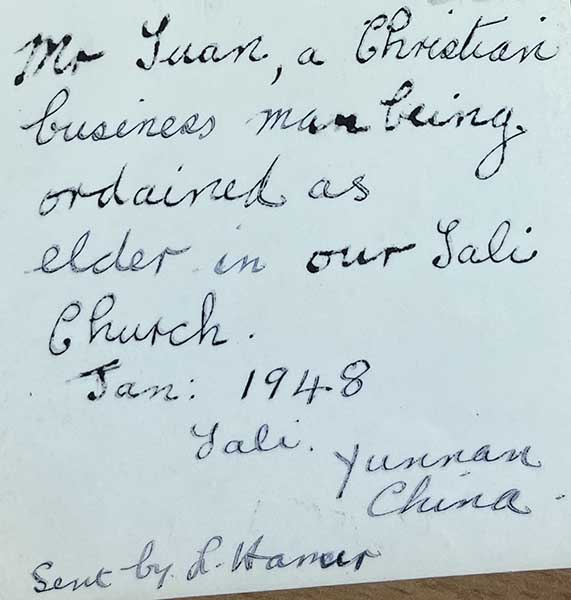 Mr Tuan, a Christian
business man being
ordained as
elder in our Tali
Church.
Jan: 1948
Tali.
Yunnan
China.
Sent by L. Hamer